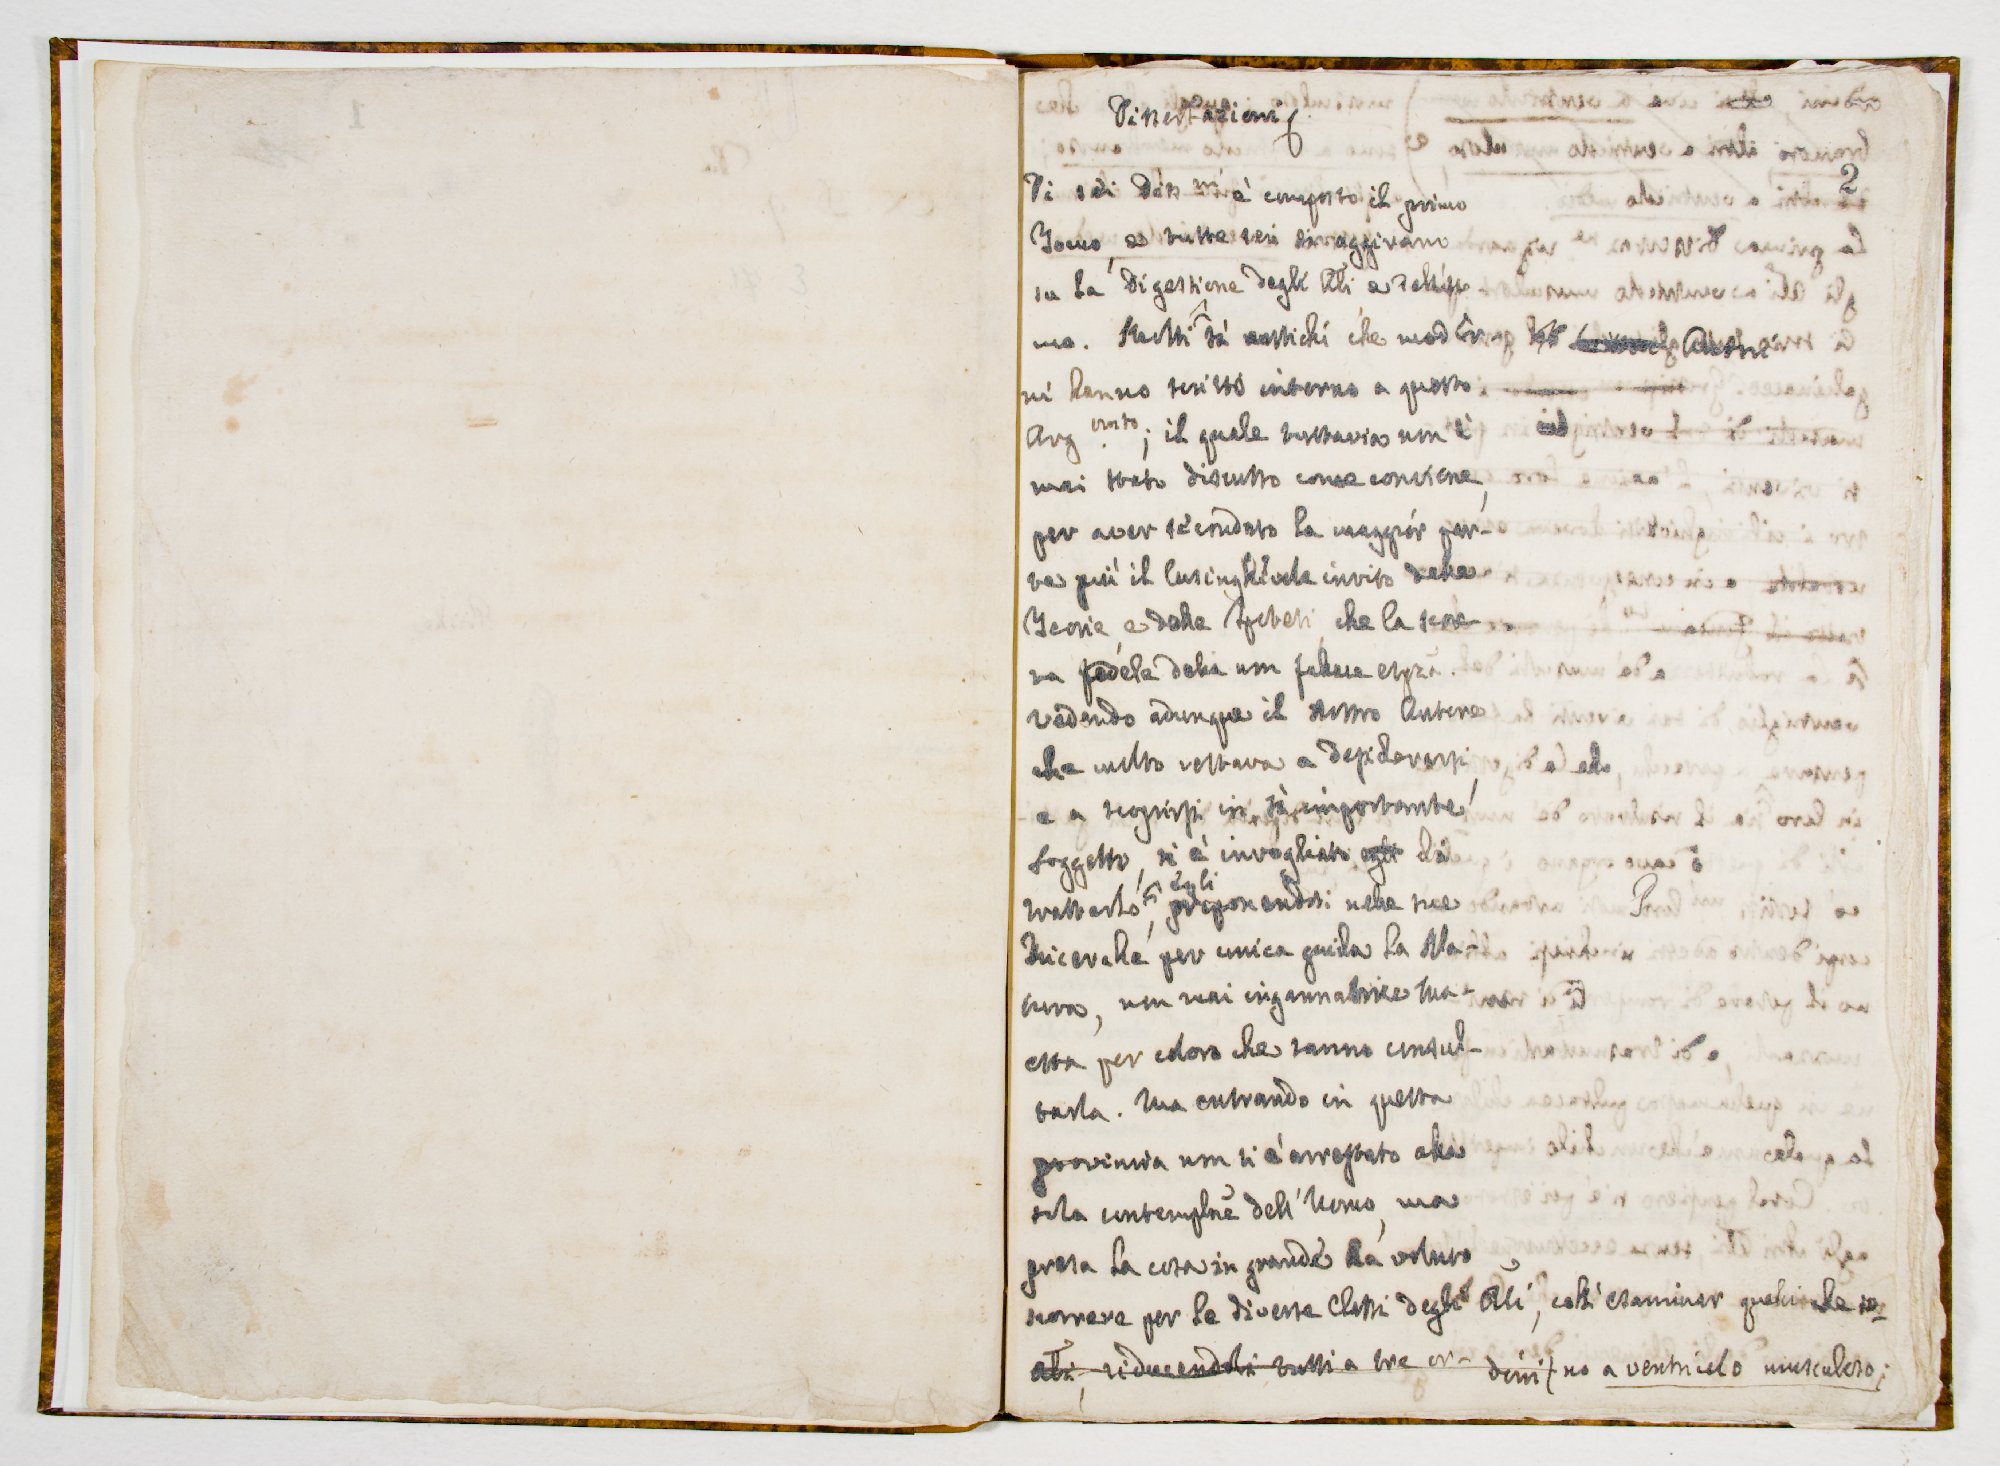 Dissertazioni
2
Di sei Diss.ni è composto il primo
Tomo, e tutte sei si raggirano
su la Digestione degli Ali e dell'Uo-
mo. Molti sì antichi che moderni Autori
ni hanno scritto intorno a questo
Arg.mento; il quale tuttavia non è
mai stato discusso come conviene,
per aver secondato la maggior par-
te più il lusinghevole invito delle
Teorie, e delle Ipotesi, che la scor-
ta fedele della non fallace espza.
Vedendo adunque il nostro Autore
che molto restava a desiderarsi,
e a scoprirsi in sì importante
soggetto, si è invogliato di
trattarlo egli, proponendosi nelle sue
Ricerche per unica guida la Na-
tura, non mai ingannatrice Ma-
estra per coloro che sanno consul-
tarla. Ma entrando in questa
provincia non si è arrestato alla
sola contemplne dell'Uomo, ma
presa la cosa in grande ha voluto
scorrere per le diverse Classi degli Ali, coll'esaminar quelli che so-
ali, riducendoli tutti a tre or- dini no a ventricolo muscoloso;